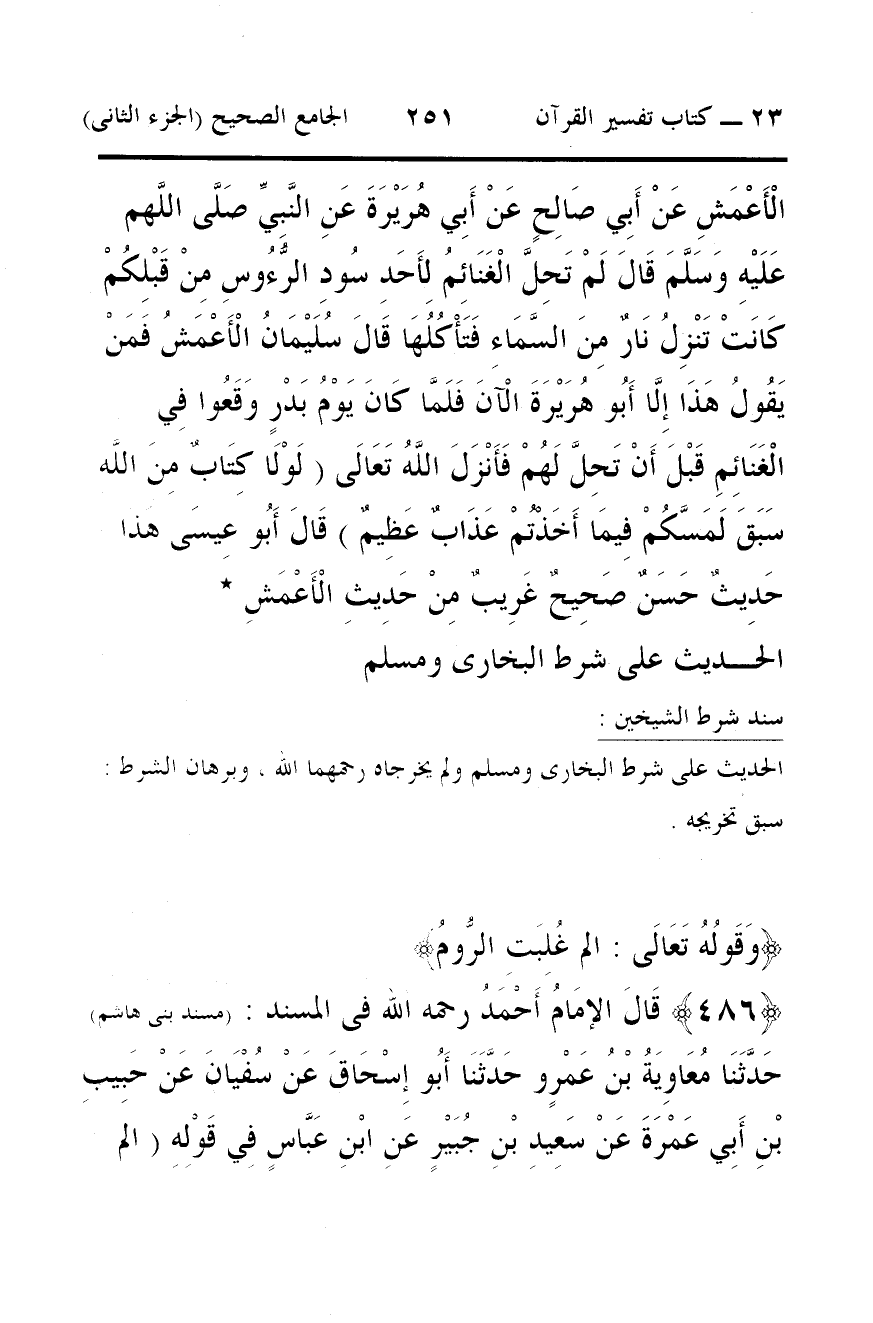 ٢٣ ــ كتاب تفسير القرآن ٢٥١ الجامع الصحيح (الجزء الثانى)
الْأَعْمَشِ عَنْ أَبِي صَالِحٍ عَنْ أَبِي هُرَيْرَةَ عَنِ النَّبِيِّ صَلَّى اللَّهم
عَلَيْهِ وَسَلَّمَ قَالَ لَمْ تَحِلَّ الْغَنَائِمُ لِأَحَدٍ سُودِ الرُّءُوسِ مِنْ قَبْلِكُمْ
كَانَتْ تَنْزِلُ نَارٌ مِنَ السَّمَاءِ فَتَأْكُلُهَا قَالَ سُلَيْمَانُ الْأَعْمَشُ فَمَنْ
يَقُولُ هَذَا إِلَّا أَبُو هُرَيْرَةَ الْآنَ فَلَمَّا كَانَ يَوْمُ بَدْرٍ وَقَعُوا فِي
الْغَنَائِمِ قَبْلَ أَنْ تَحِلَّ لَهُمْ فَأَنْزَلَ اللَّهُ تَعَالَى ( لَوْلَا كِتَابٌ مِنَ اللَّه
سَبَقَ لَمَسَّكُمْ فِيمَا أَخَذْتُمْ عَذَابٌ عَظِيمٌ ) قَالَ أَبُو عِيسَى هذا
حَدِيثٌ حَسَنٌ صَحِيحٌ غَرِيبٌ مِنْ حَدِيثِ الْأَعْمَشِ *
الحـــديث على شرط البخارى ومسلم
سند شرط الشيخين :
الحديث على شرط البخارى ومسلم ولم يخرجاه رحمهما الله ، وبرهان الشرط :
سبق تخريجه .
﴿وَقَوْلُهُ تَعَالَى : الم غُلِبَتِ الرُّومُ﴾
﴿٤٨٦﴾ قَالَ الإِمَامُ أَحْمَدُ رحمه الله فى المسند : (مسند بنى هاشم)
حَدَّثَنَا مُعَاوِيَةُ بْنُ عَمْرٍو حَدَّثَنَا أَبُو إِسْحَاقَ عَنْ سُفْيَانَ عَنْ حَبِيبِ
بْنِ أَبِي عَمْرَةَ عَنْ سَعِيدِ بْنِ جُبَيْرٍ عَنِ ابْنِ عَبَّاسٍ فِي قَوْلِهِ ( الم